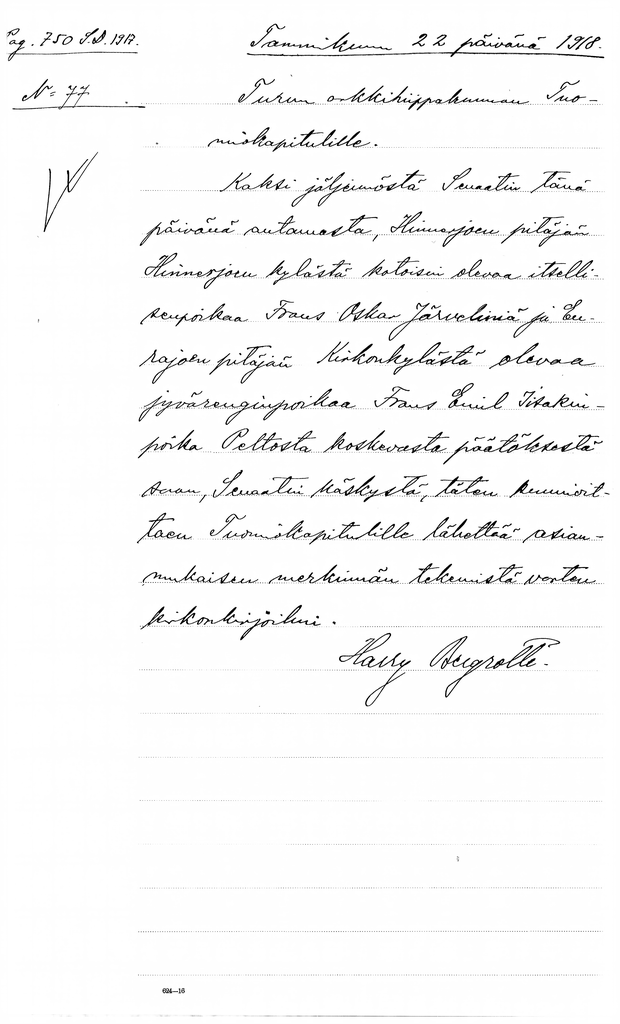 Pag. 750 S.D. 1917.
Tammikuun 22 päivänä 1918.
No 77
Turun arkkihiippakunnan Tuo-
miokapitulille.
Kaksi jäljennöstä Senaatin tänä
päivänä antamasta, Hinnerjoen pitäjän
Hinnerjoen kylästä kotoisin olevaa itselli-
senpoikaa Frans Oskar Järveliniä ja Eu-
rajoen pitäjän Kirkonkylästä olevaa
jyvärenginpoikaa Frans Emil Iisakin-
poika Peltosta koskevasta päätöksestä
saan, Senaatin käskystä, täten kunnioit-
taen Tuomiokapitulille lähettää asian-
mukaisen merkinnän tekemistä varten
kirkonkirjoihin.
Harry
624—16